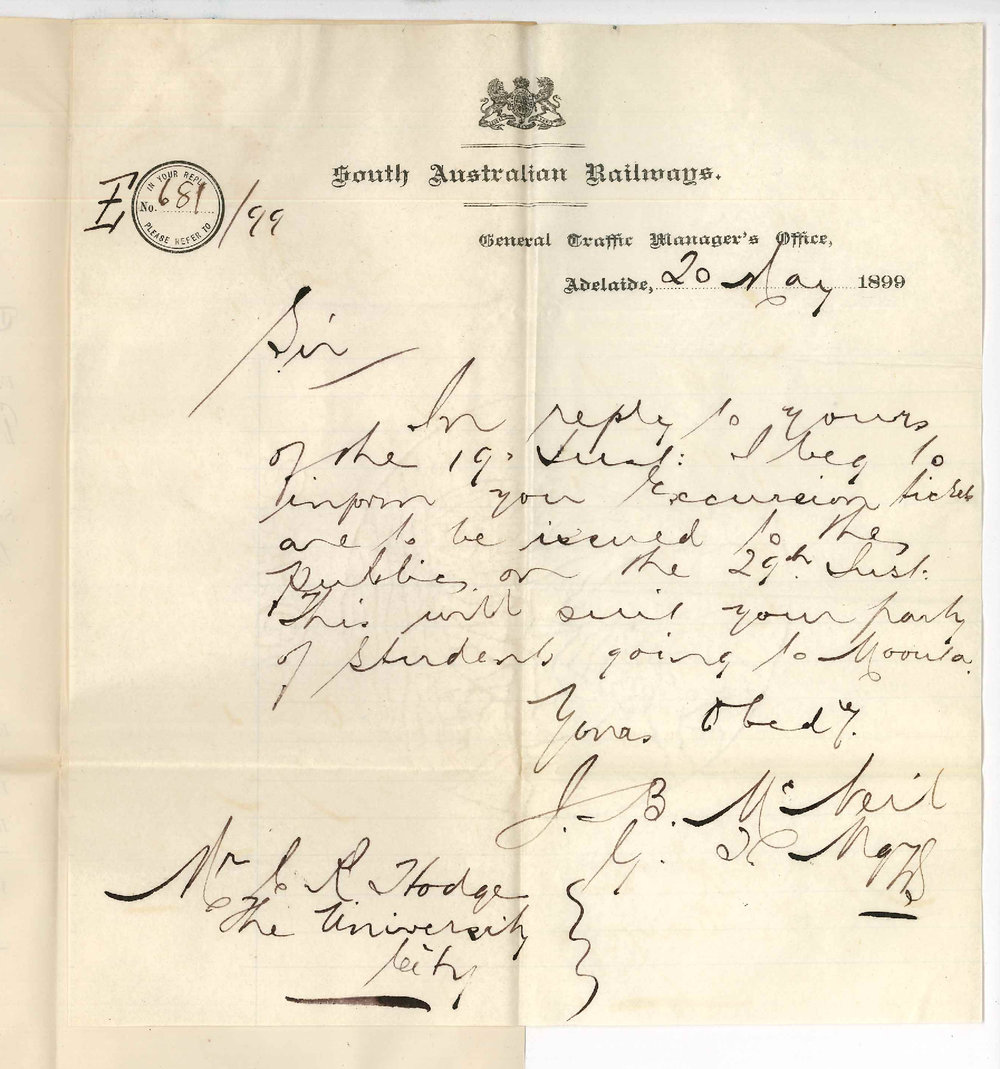 South Australian Railways.
E IN YOUR REPLY No. 681 PLEASE REFER TO /99
General Traffic Manager's Office,
Adelaide, 20 May 1899
Sir
In reply to yours
of the 19. Inst: I beg to
inform you Excursion tickets
are to be issued to the
public on the 29th Inst:
This will suit your party
of students going to Moonta.
Yours Obedly.
J. B. McNeil
G. T. Mngr
Mr C R Hodge
The University
City